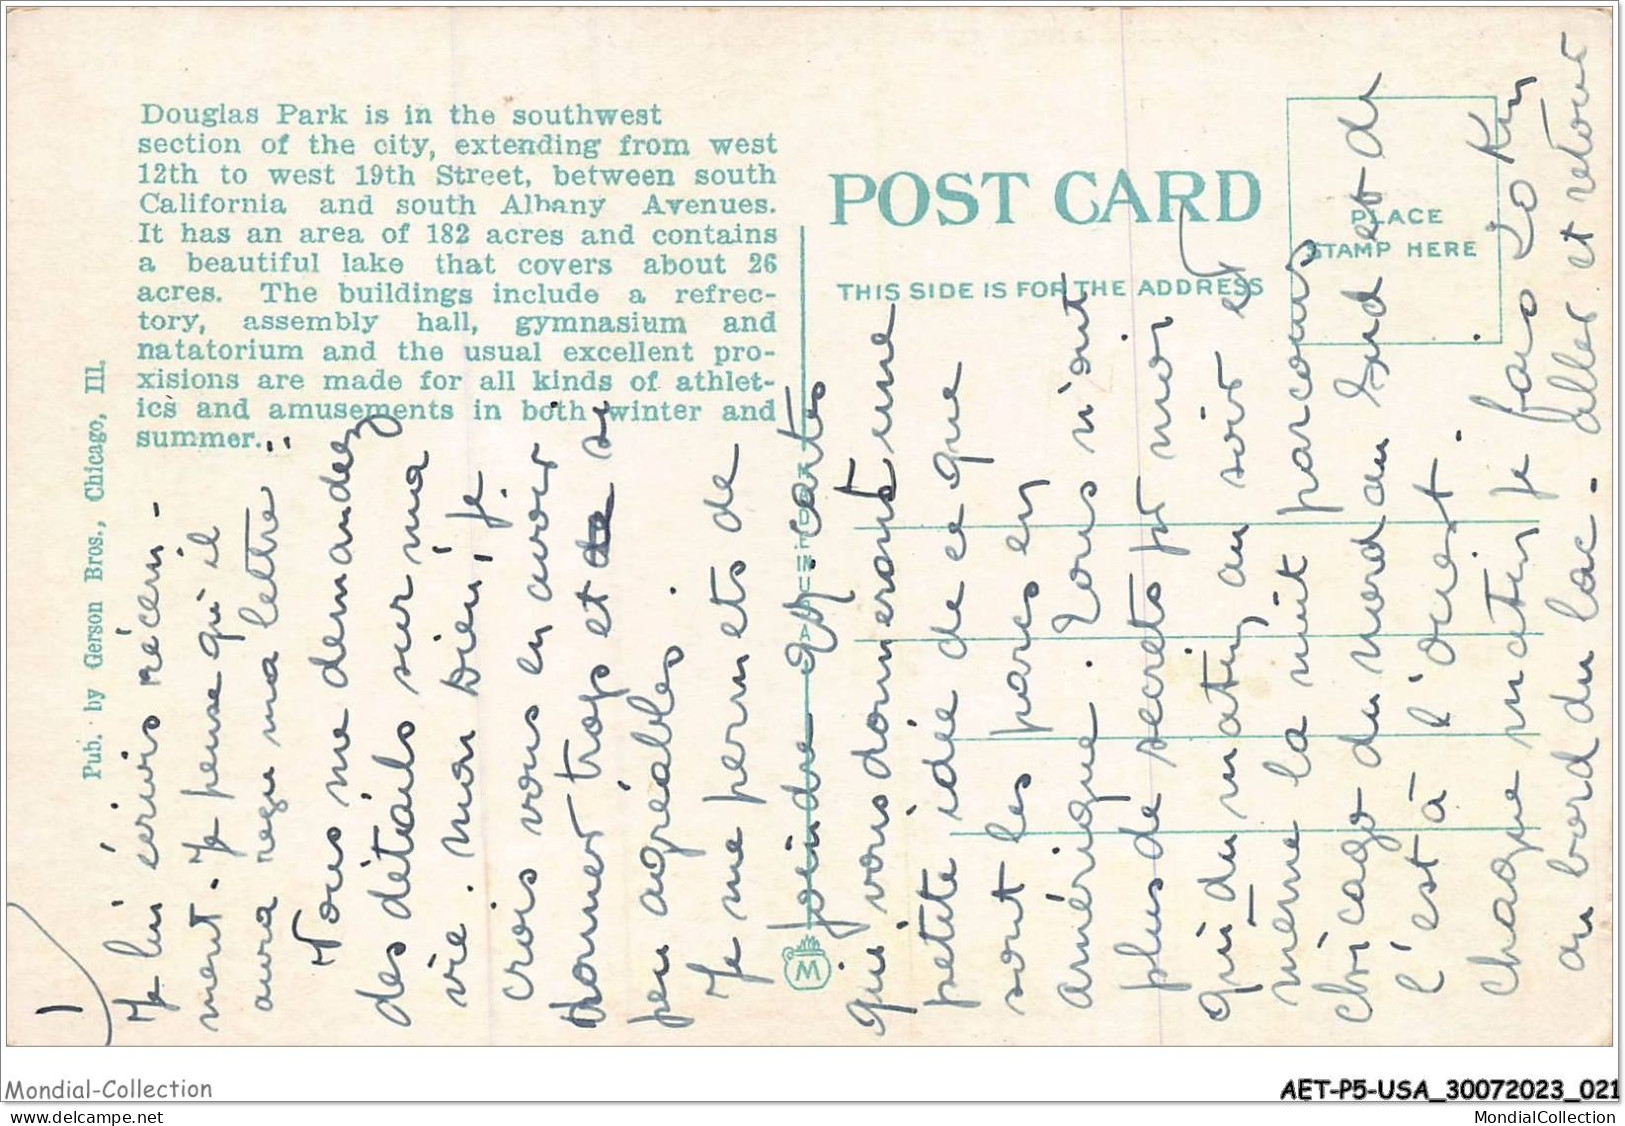 Douglas Park is in the southwest
section of the city, extending from west
12th to west 19th Street, between south
California and south Albany Avenues.
It has an area of 182 acres and contains
a beautiful lake that covers about 26
acres. The buildings include a refrec-
tory, assembly hall, gymnasium and
natatorium and the usual excellent pro-
xisions are made for all kinds of athlet-
ics and amusements in both winter and
summer...
Pub. by Gerson Bros., Chicago, Ill.
POST CARD
THIS SIDE IS FOR THE ADDRESS
PLACE
STAMP HERE
M
1
Je lui écrivis récem-
ment. Je pense qu'il
aura reçu ma lettre
Vous me demandez
des détails sur ma
vie. mon Dieu, je
crois vous en avoir
donner trop et de si
peu agréables.
Je me permets de
joindre qq. cartes
qui vous donneront une
petite idée de ce que
sont les parcs en
amérique. Vous n'ont
plus de secrets pr moi
qui du matin au soir et
meme la nuit parcours
chicago du nord au Sud et de
l'est à l'ouest.
Chaque matin je fais 20 Km
au bord du lac. Aller et retour
Mondial-Collection
AET-P5-USA_30072023_021
www.delcampe.net
MondialCollection